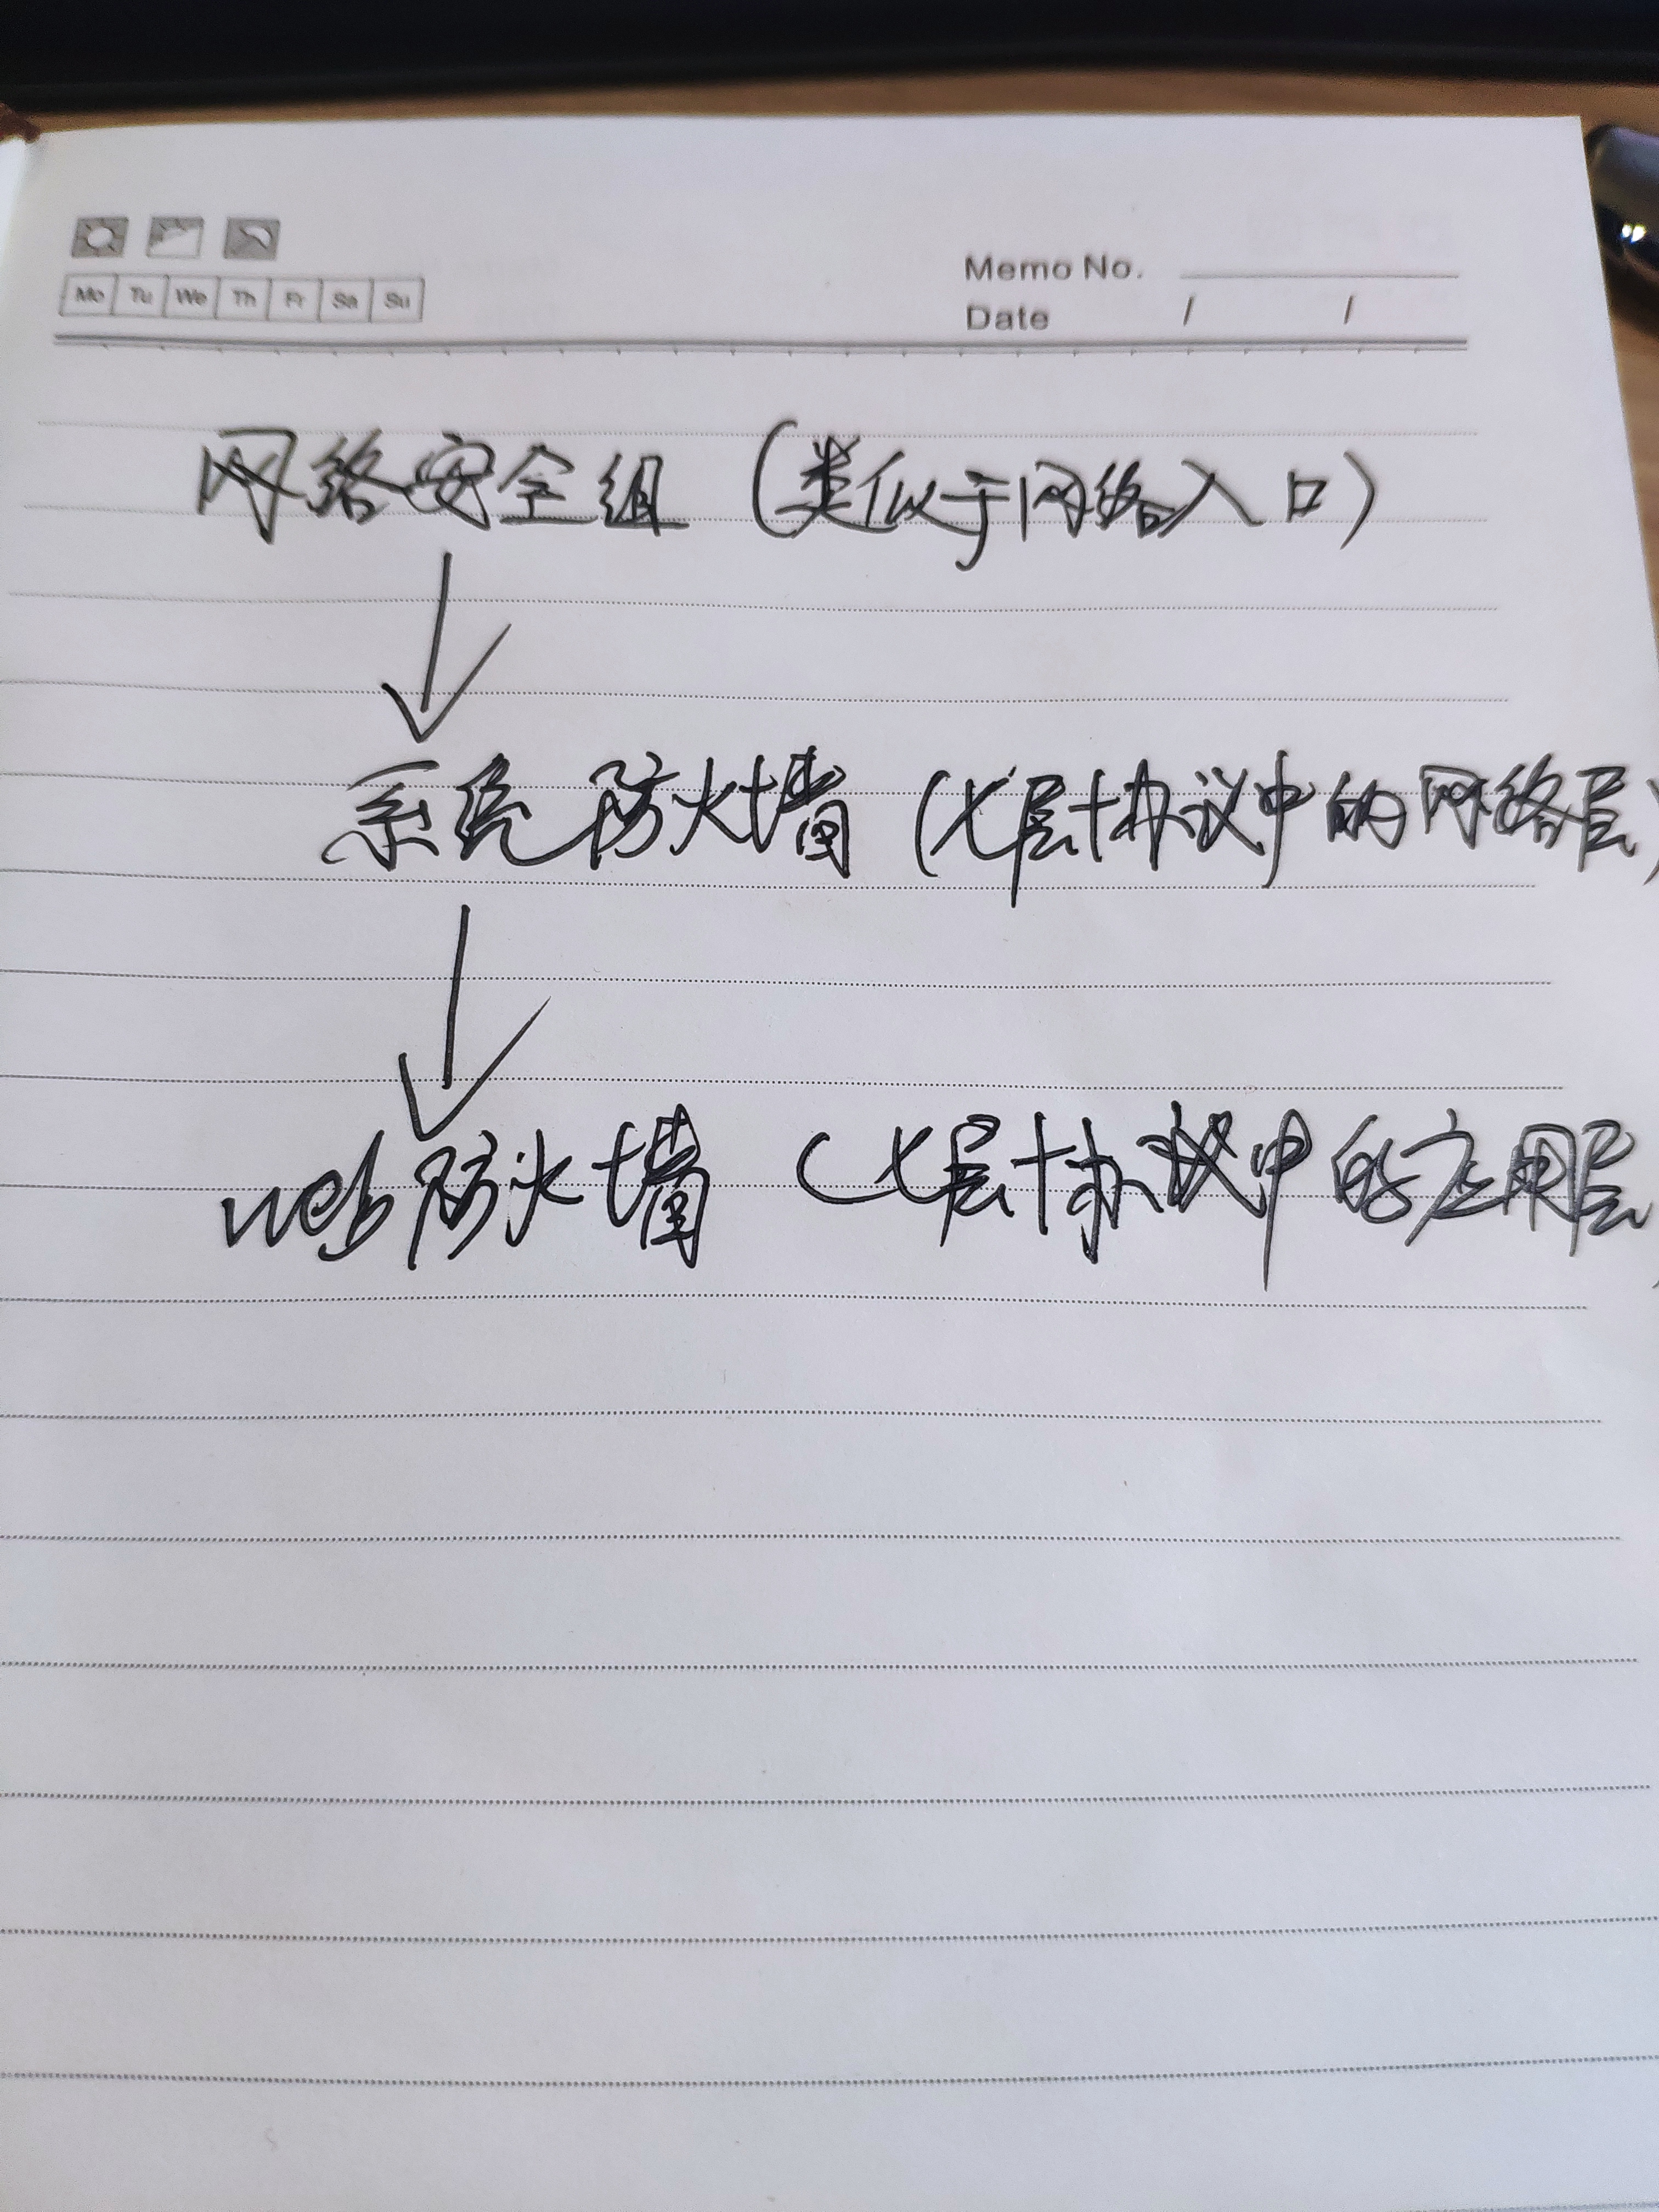 Mo Tu We Th Fr Sa Su
Memo No.
Date / /
网络安全组（类似于网络入口）
系统防火墙（七层协议中的网络层）
web防火墙（七层协议中的应用层）